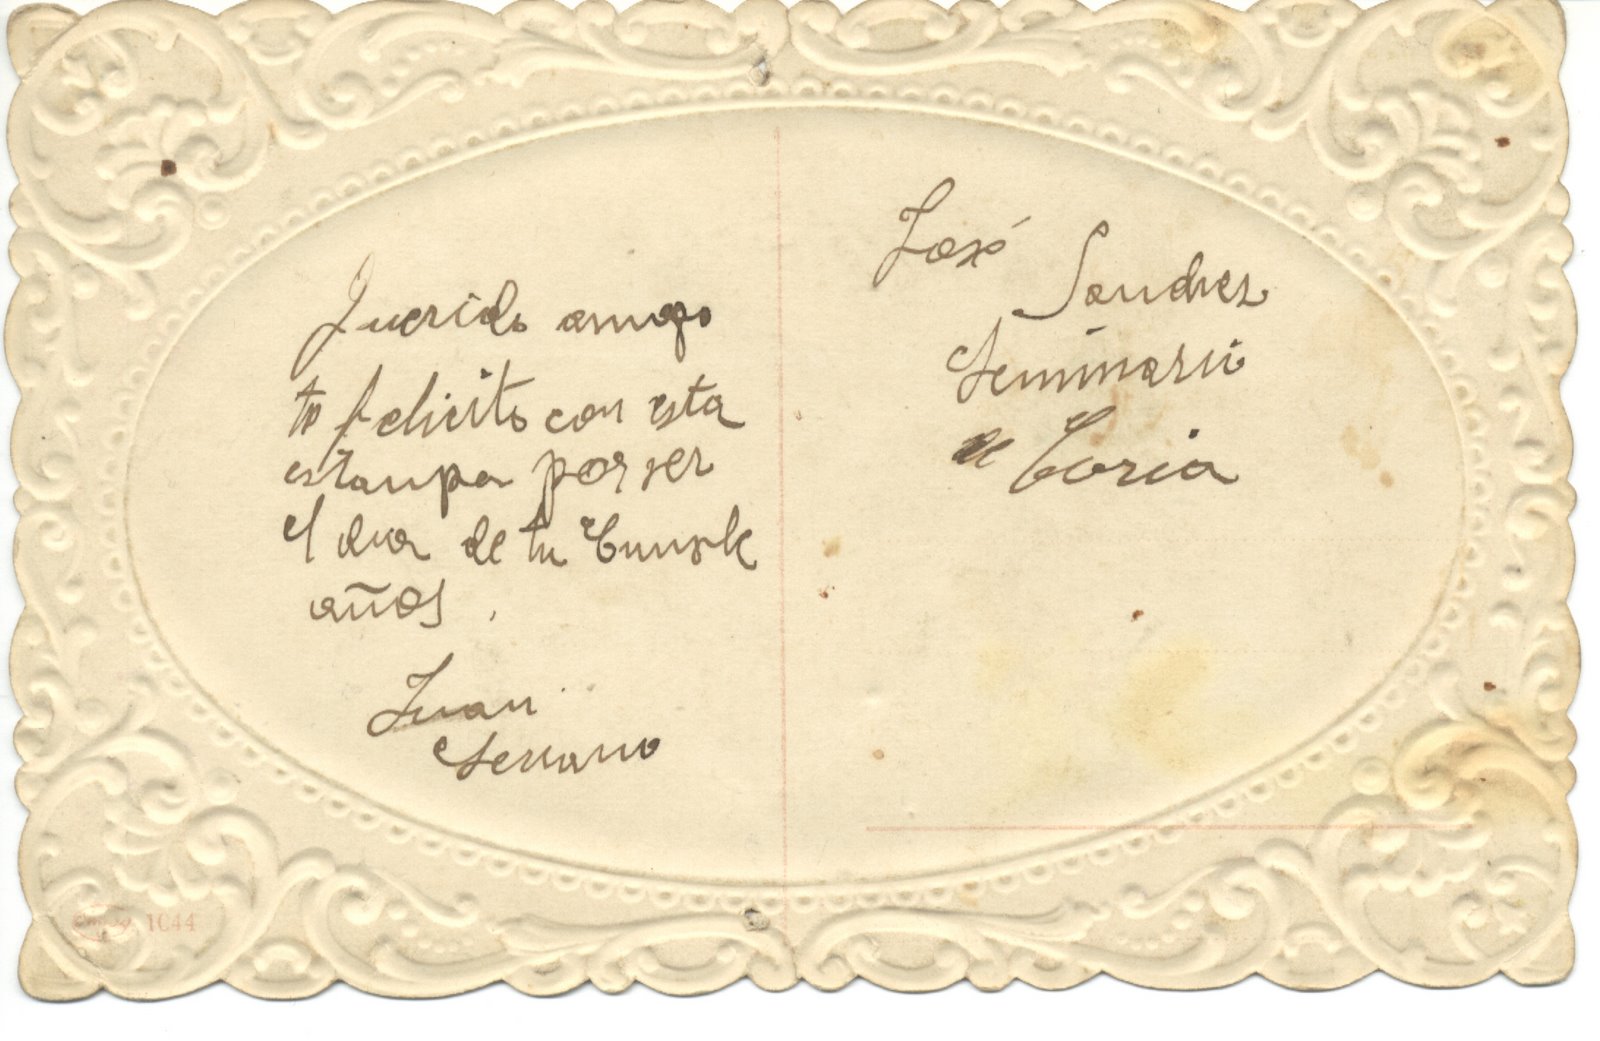 Querido amigo
te felicito con esta
estanpa por ser
el dia de tu Cunple
años.
Juan
Serrano
José
Sanches
Seminario
de Coria
1C44